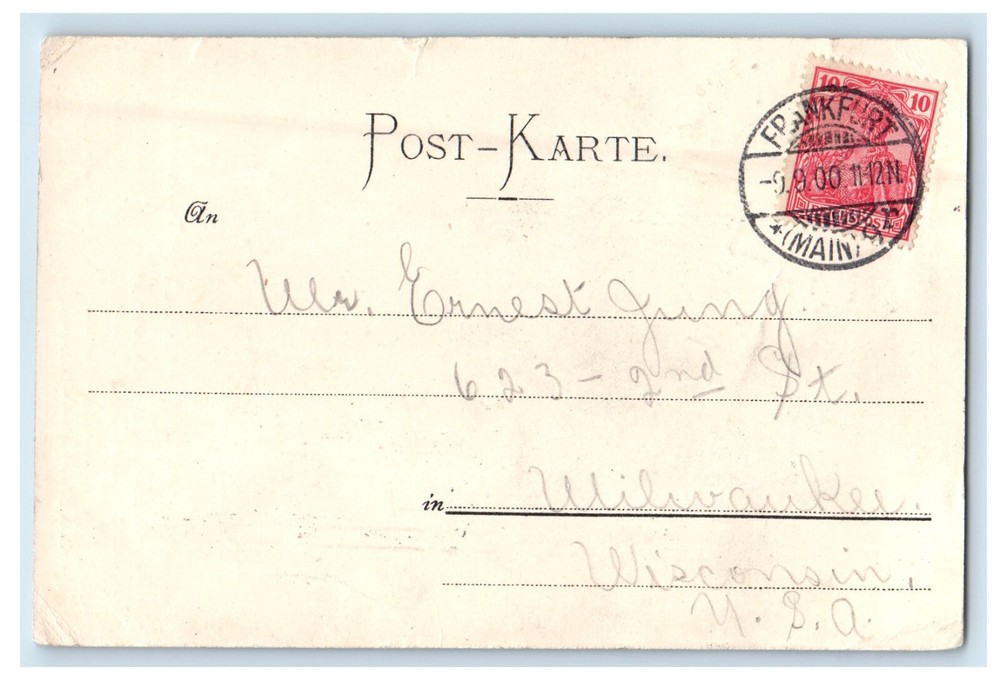 POST-KARTE.
10 10
FRANKFURT
-9.9.00 11-12N.
* (MAIN)
An
Mr. Ernest Jung.
623-2nd St.
in Milwaukee.
Wisconsin,
U.S.A.